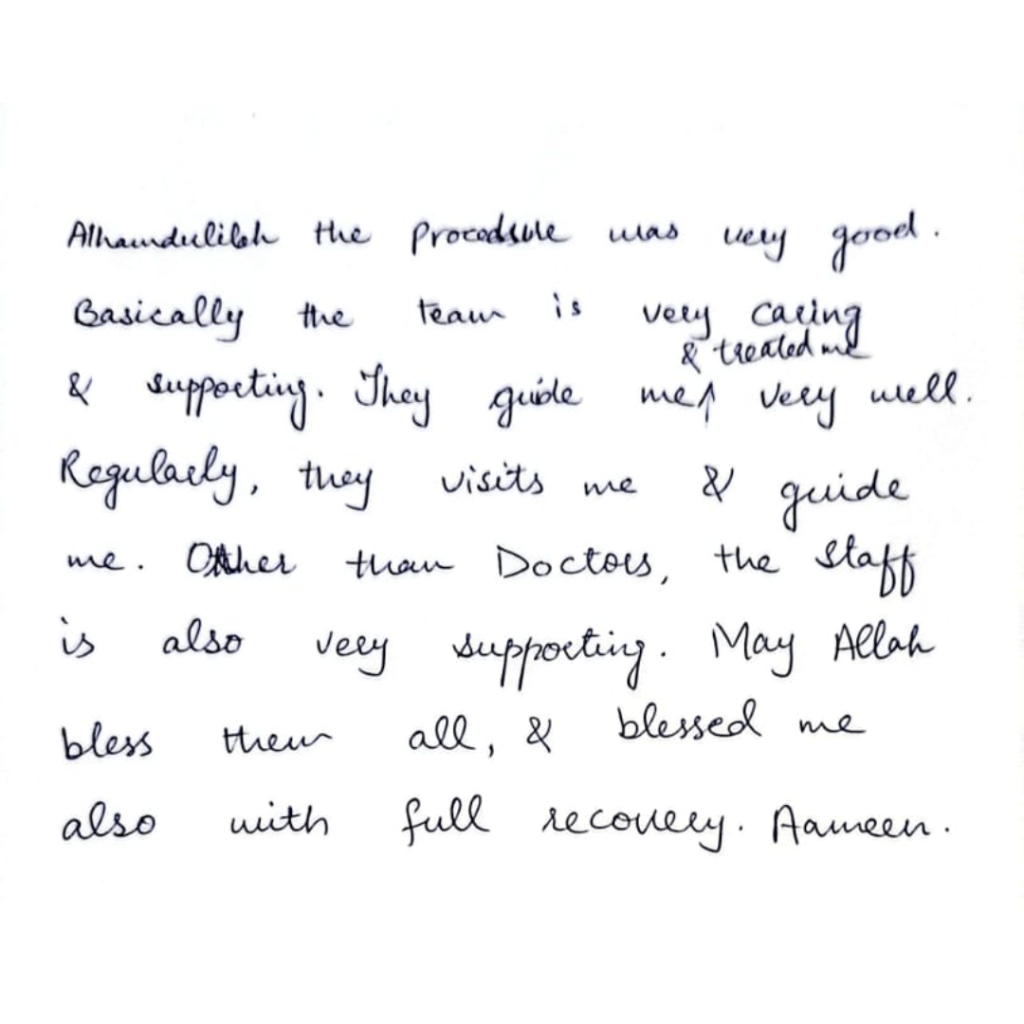 Alhamdulilah the procedsure was very good.
Basically the team is very caring
& supporting. They guide me & treated me very well.
Regularly, they visits me & guide
me. Other than Doctors, the staff
is also very supporting. May Allah
bless them all, & blessed me
also with full recovery. Aameen.